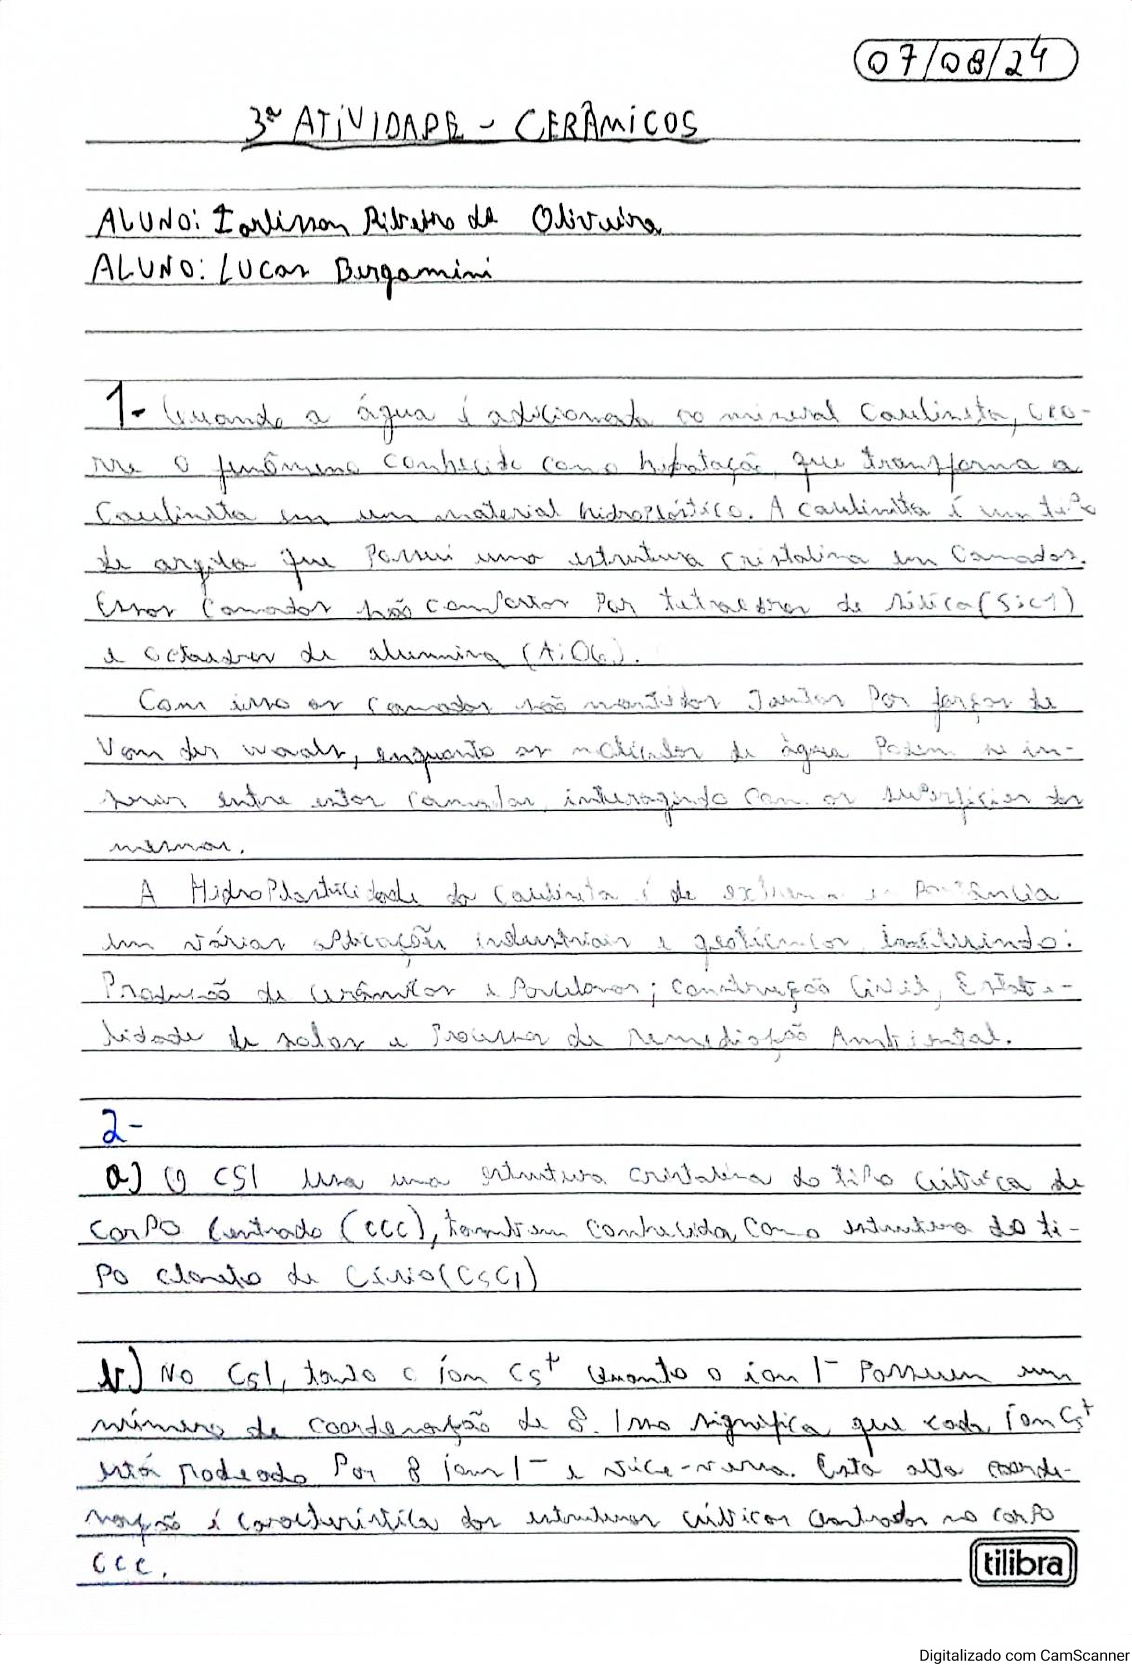 07/08/24
3ª ATIVIDADE - CERÂMICOS
ALUNO: Iarlisson Ribeiro de Oliveira
ALUNO: Lucas Bergamini
1- Quando a água é adicionada ao mineral Caulinita, oco-
rre o fenômeno conhecido como hidratação, que transforma a
Caulinita em um material hidroplástico. A caulinita é um tipo
de argila que Possui uma estrutura cristalina em Camadas.
Essas Camadas são compostas Por tetraedros de sílica (SiO4)
e octaedros de alumina (AlO6).
Com isso as camadas são mantidas Juntas Por forças de
Van der waals, enquanto as moléculas de água Podem se in-
serir entre estas camadas, interagindo com as superfícies das
mesmas.
A HidroPlasticidade da Caulinita é de extrema importância
em várias aplicações industriais e geotécnicas, incluindo:
Produção de cerâmicos e Porcelanas; construção Civil, Estabi-
lidade de solos e Processos de remediação Ambiental.
2-
a) O CSI usa uma estrutura cristalina do tipo cúbica de
CorPo Centrado (CCC), também conhecida como estrutura do ti-
Po cloreto de Césio (CsCl)
b) No CsI, tanto o íon Cs+ Quanto o íon I- Possuem um
número de coordenação de 8. Isso significa que cada íon Cs+
está rodeado Por 8 íons I- e vice-versa. Esta alta coorde-
nação é característica das estruturas cúbicas centradas no corPo
CCC.
tilibra
Digitalizado com CamScanner